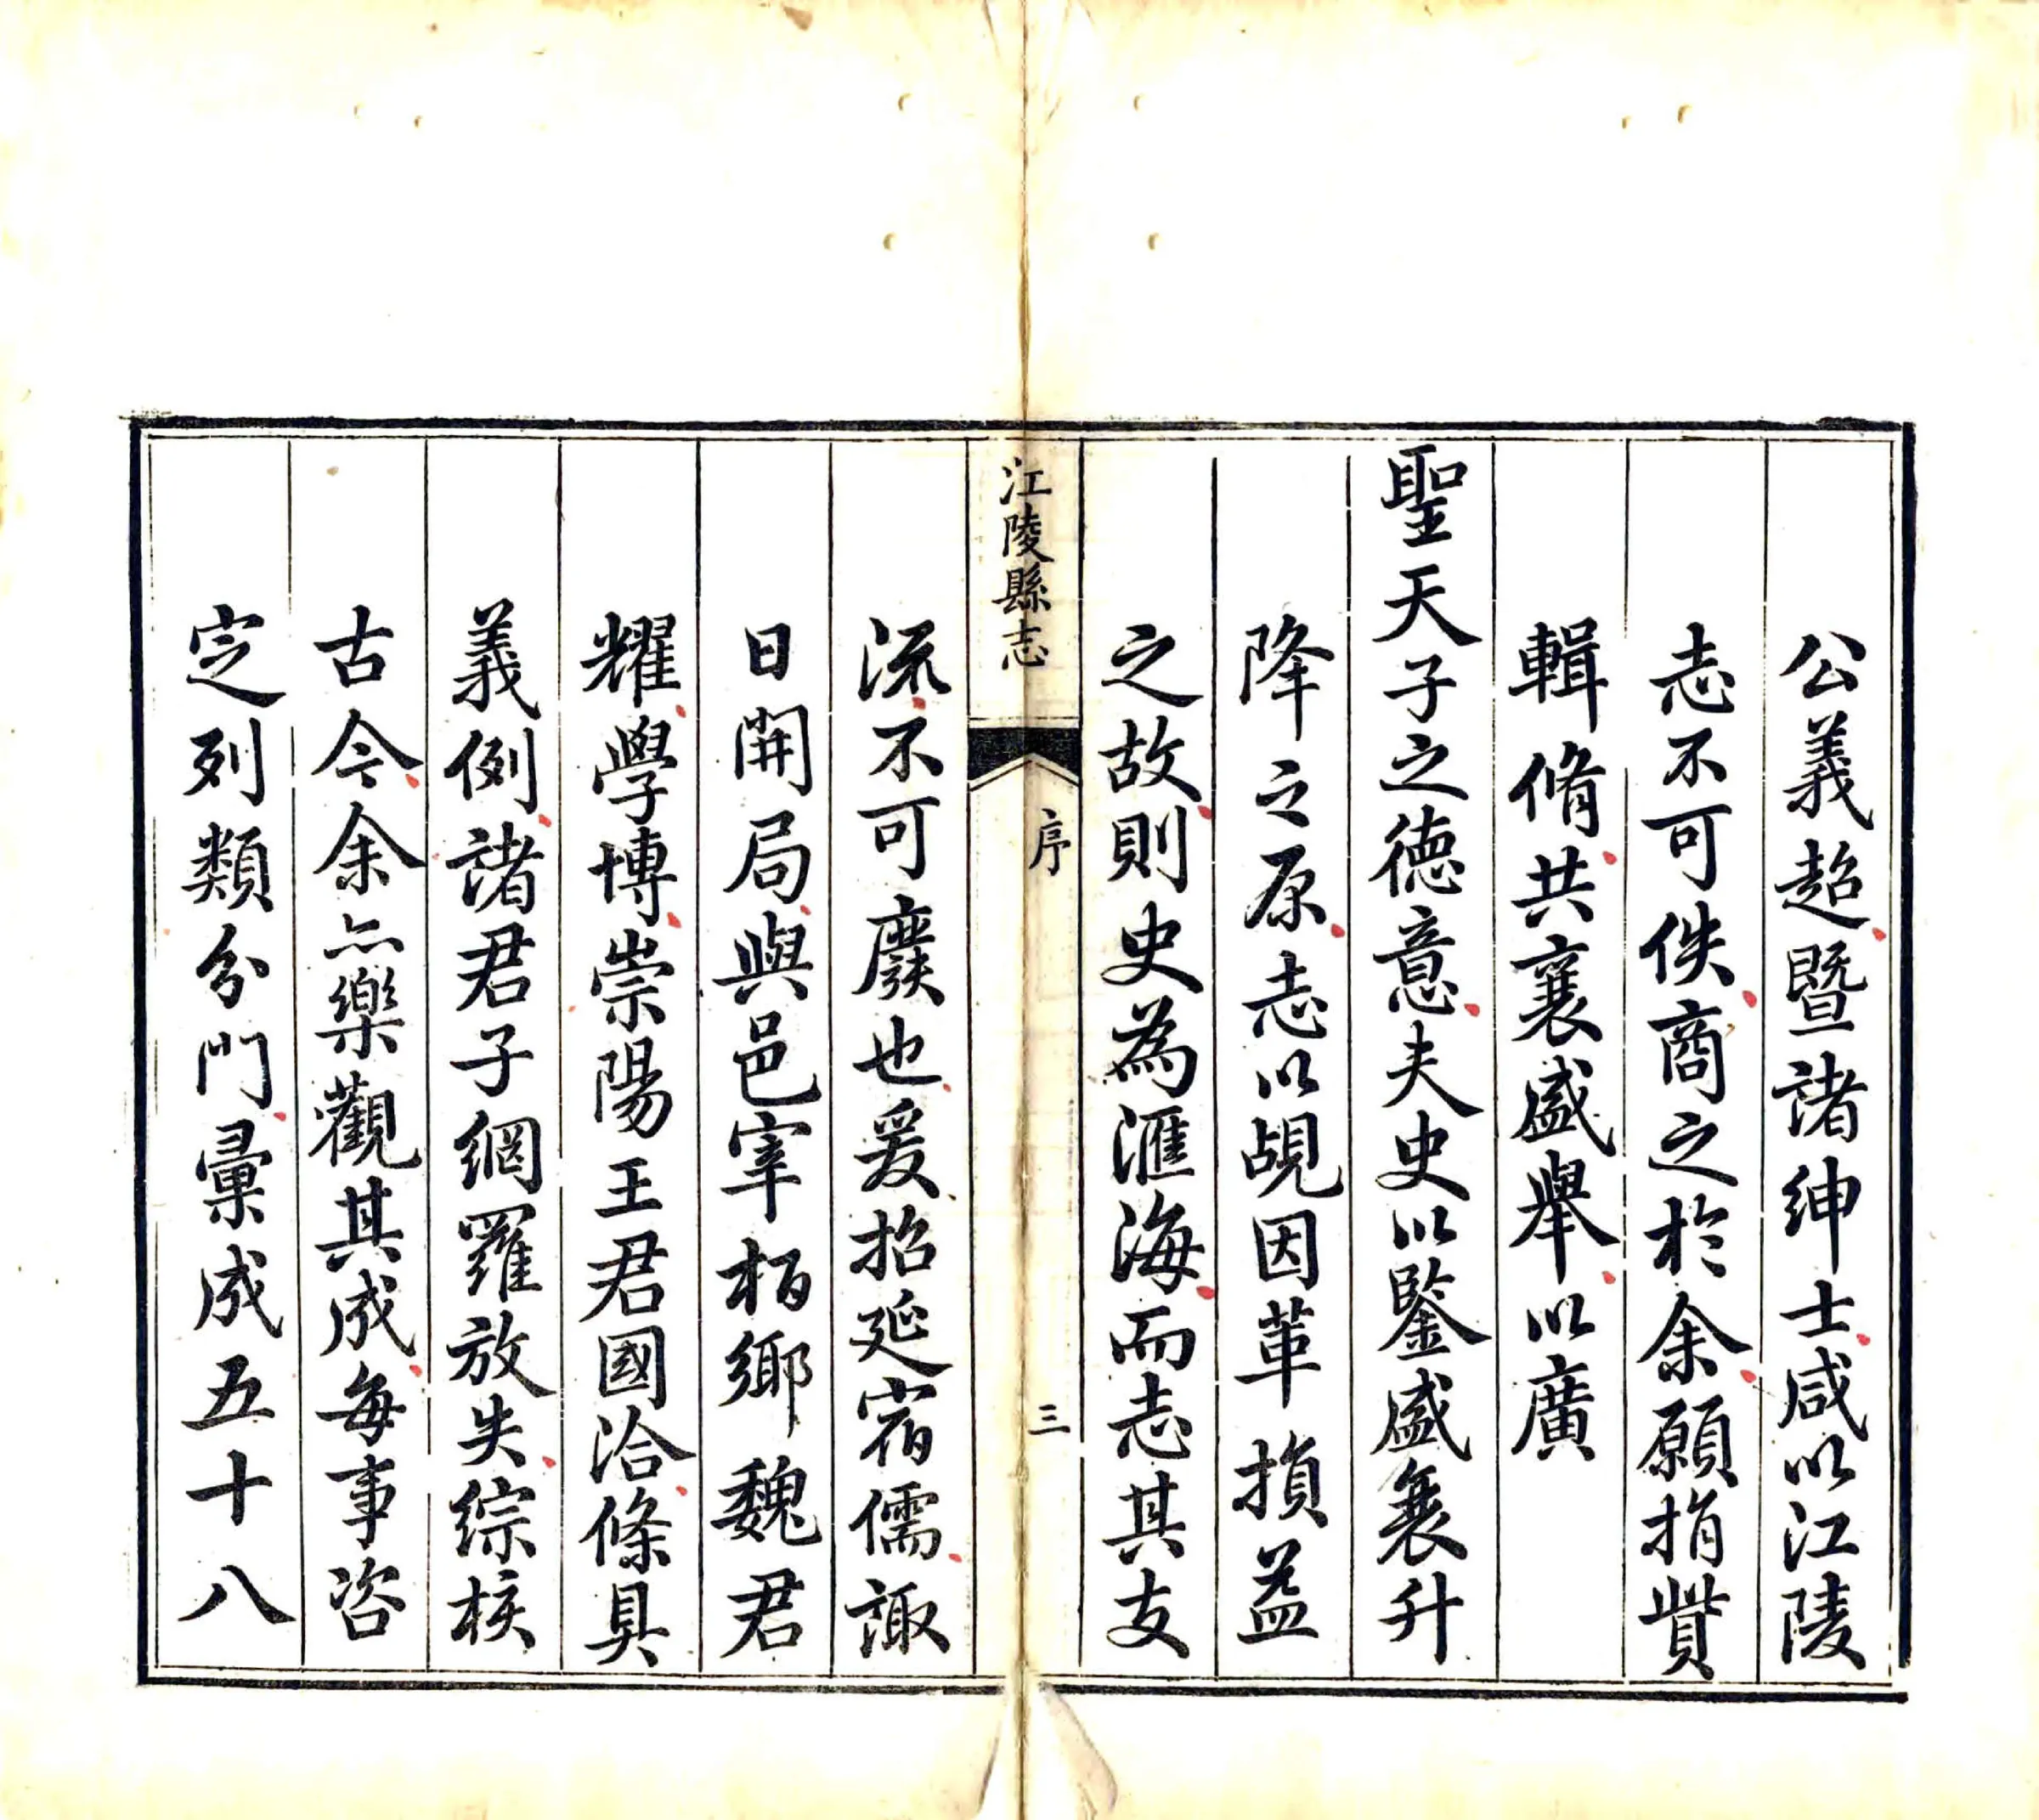 公義超暨諸紳士咸以江陵
志不可佚商之於余願捐貲
輯脩共襄盛舉以廣
聖天子之德意夫史以鑒盛衰升
降之原志以覘因革損益
之故則史為滙海而志其支
江陵縣志 序 三
流不可廢也爰招延宿儒諏
日開局與邑宰栢鄉魏君
耀學博崇陽王君國洽條具
義例諸君子網羅放失綜核
古今余亦樂觀其成每事咨
定列類分門彙成五十八